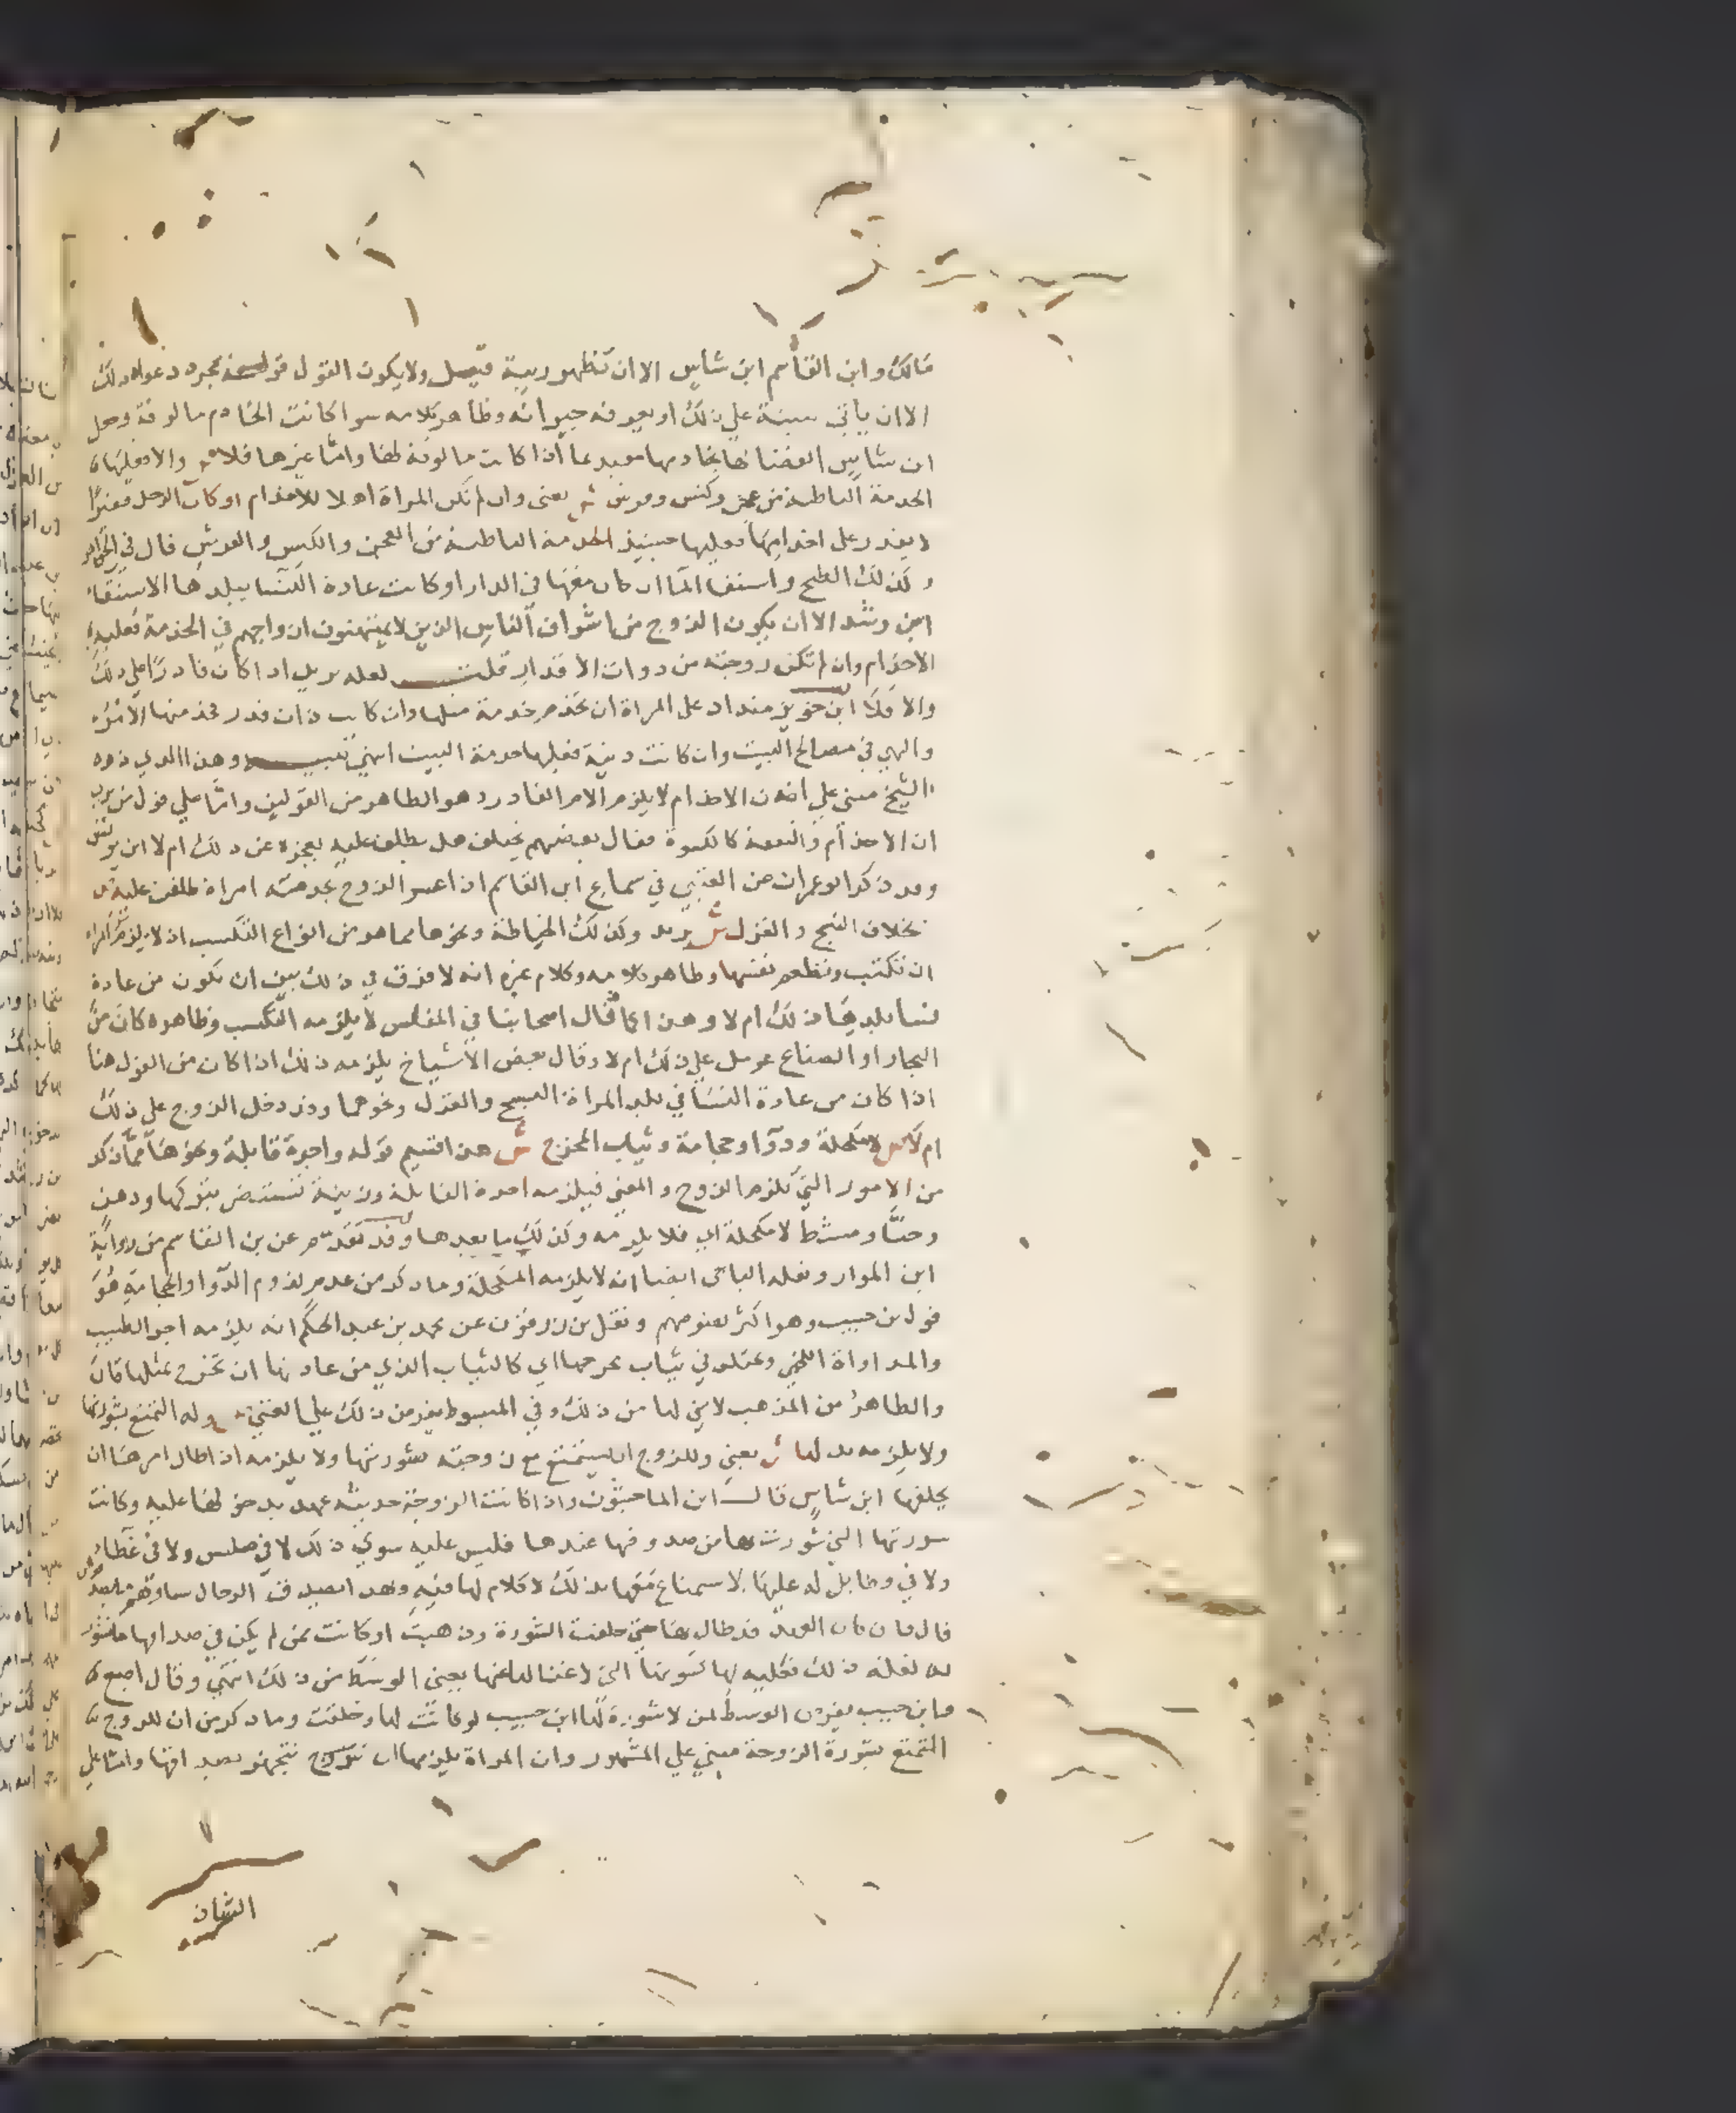 مالك وابن القاسم ابن شاس الا ان تظهر ريبة ولا يكون القول قوله بمجرد دعواه ذلك
الا ان ياتي ببينة علي ذلك او يعرفه جيرانه وظاهر كلامه سوا كانت الخادم مالوفة وجعل
ابن شاس القضا لها بخادمها مقيد بما اذا كانت مالوفة لها واما غيرها فلا م والا فعليها
الخدمة الباطنة من عجن وكنس وفرش ش يعني وان لم تكن المراة اهلا للاخدام او كان الرجل فقيرا
لا يقدر على اخدامها فعليها حينيذ الخدمة الباطنة من العجن والكنس والفرش قال في
وكذلك الطبخ واستقا الما ان كان معها في الدار او كانت عادة النسا ببلدها الاستقاء
ابن رشد الا ان يكون الزوج من اشراف الناس الذين لا يمتهنون ازواجهم في الخدمة فعليه
الاخدام وان لم تكن زوجته من ذوات الاقدار قلت لعله يريد اذا كان قادرا علي ذلك
والا فلا ابن خويز منداد على المراة ان تخدم خدمة مثلها وان كانت ذات قدر فخدمتها الامر
والنهي في مصالح البيت وان كانت دنية فعليها خدمة البيت انتهي تنبيه وهذا الذي ذكره
الشيخ مبني علي ان الاخدام لا يلزم الا من القادر وهو الظاهر من القولين واما علي قول من يري
ان الاخدام والنفقة كالكسوة فقال بعضهم يختلف هل يطلق عليه بعجزه عن ذلك ام لا ابن يونس
وقد ذكر ابو عمران عن العتبي في سماع ابن القاسم اذا اعسر الزوج بخدمة امراة طلقت عليه م
بخلاف النسج والغزل ش يريد وكذلك الخياطة ونحوها مما هو من انواع التكسب اذ لا يلزم المراة
ان تكتسب وتطعم نفسها وظاهر كلامه وكلام غيره انه لا فرق في ذلك بين ان تكون من عادة
نسا بلدها ذلك ام لا وهذا كما قال اصحابنا في المفلس لا يلزمه التكسب وظاهره كان من
التجار او الصناع عومل علي ذلك ام لا وقال بعض الاشياخ يلزمه ذلك اذا كان من الغزل هنا
اذا كان من عادة النسا في بلد المراة النسج والغزل ونحوهما وقد دخل الزوج علي ذلك
ام لا م لا مكحلة ودوا وحجامة وثياب المخرج ش هذا قسيم قوله واجرة قابلة ونحوها مما ذكر
من الامور التي تلزم الزوج والمعني فيلزمه اجرة القابلة وزينة تستضر بتركها ودهن
وحنا ومشط لا مكحلة اي فلا يلزمه وكذلك ما بعدها وقد تقدم عن بن القاسم من رواية
ابن المواز ونقله الباجي ايضا انه لا يلزمه المكحلة وما ذكر من عدم لزوم الدوا والحجامة هو
قول بن حبيب وهو اكثر نصوصهم ونقل بن زرقون عن محمد بن عبد الحكم انه يلزمه اجر الطبيب
والمداواة اللخمي وعندي في ثياب مخرجها اي كالثياب الذي من عادتها ان تخرج بمثلها قال
والظاهر من المذهب لا شي لها من ذلك وفي المبسوط يفرض ذلك علي الغني م وله التمتع بشورتها
ولا يلزمه بدلها ش يعني وللزوج ان يستمتع مع زوجته بشورتها ولا يلزمه اذا طال امرها ان
يخلفها ابن شاس قال ابن الماجشون واذا كانت الزوجة حديثة عهد بدخولها عليه وكانت
شورتها التي شورت بها من صدوقها عندها فليس عليه سوي ذلك لا في ملبس ولا في غطا
ولا في وطا بل له عليها الاستمتاع معها بذلك لا كلام لها فيه وبهذا
قال فان كان العهد قد طال بها حتي خلقت الشورة وذهبت او كانت ممن لم يكن في صداقها ما تتشور
به لقلته ذلك فعليه لها كسوتها التي لا غنا لها عنها يعني الوسط من ذلك انتهي وقال اصبغ
وابن حبيب يفرض الوسط لمن لا شورة لها ابن حبيب لو كانت لها وخلقت وما ذكر من ان للزوج
التمتع بشورة الزوجة مبني علي المشهور وان المراة يلزمها ان تتجهز بصداقها واما علي
الشاذ